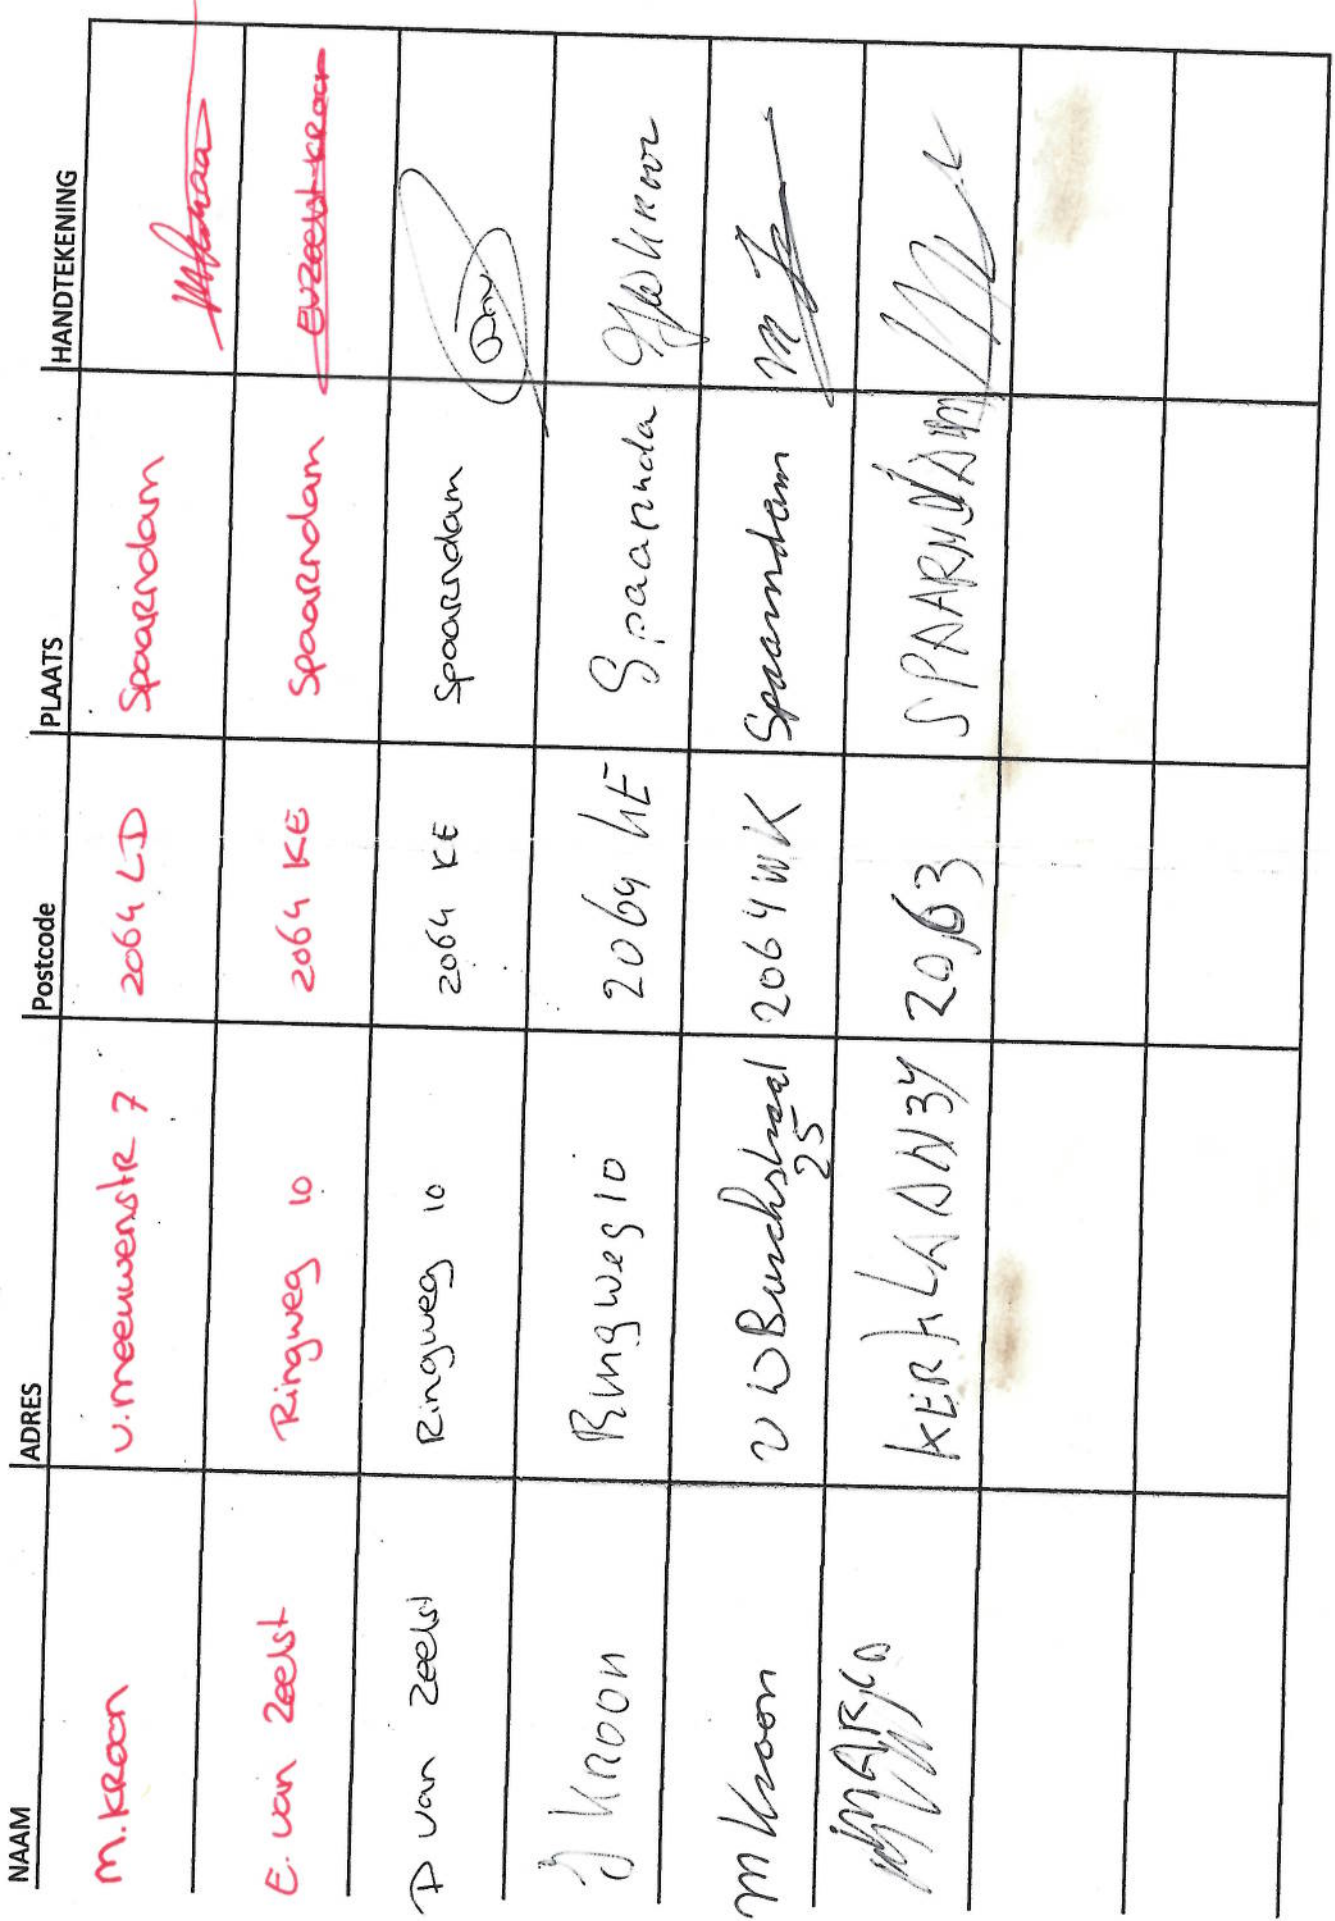 NAAM ADRES Postcode PLAATS HANDTEKENING
M. Kroon v. meeuwenstr 7 2064 LD Spaarndam
E. van Zeelst Ringweg 10 2064 KE Spaarndam EvZeelst-Kroon
P van Zeelst Ringweg 10 2064 KE Spaarndam
J Kroon Ringweg 10 2064 KE Spaarnda
M Kroon 2064 WK Spaarndam
25
MARCO KERKLAAN 34 2063 SPAARNDAM